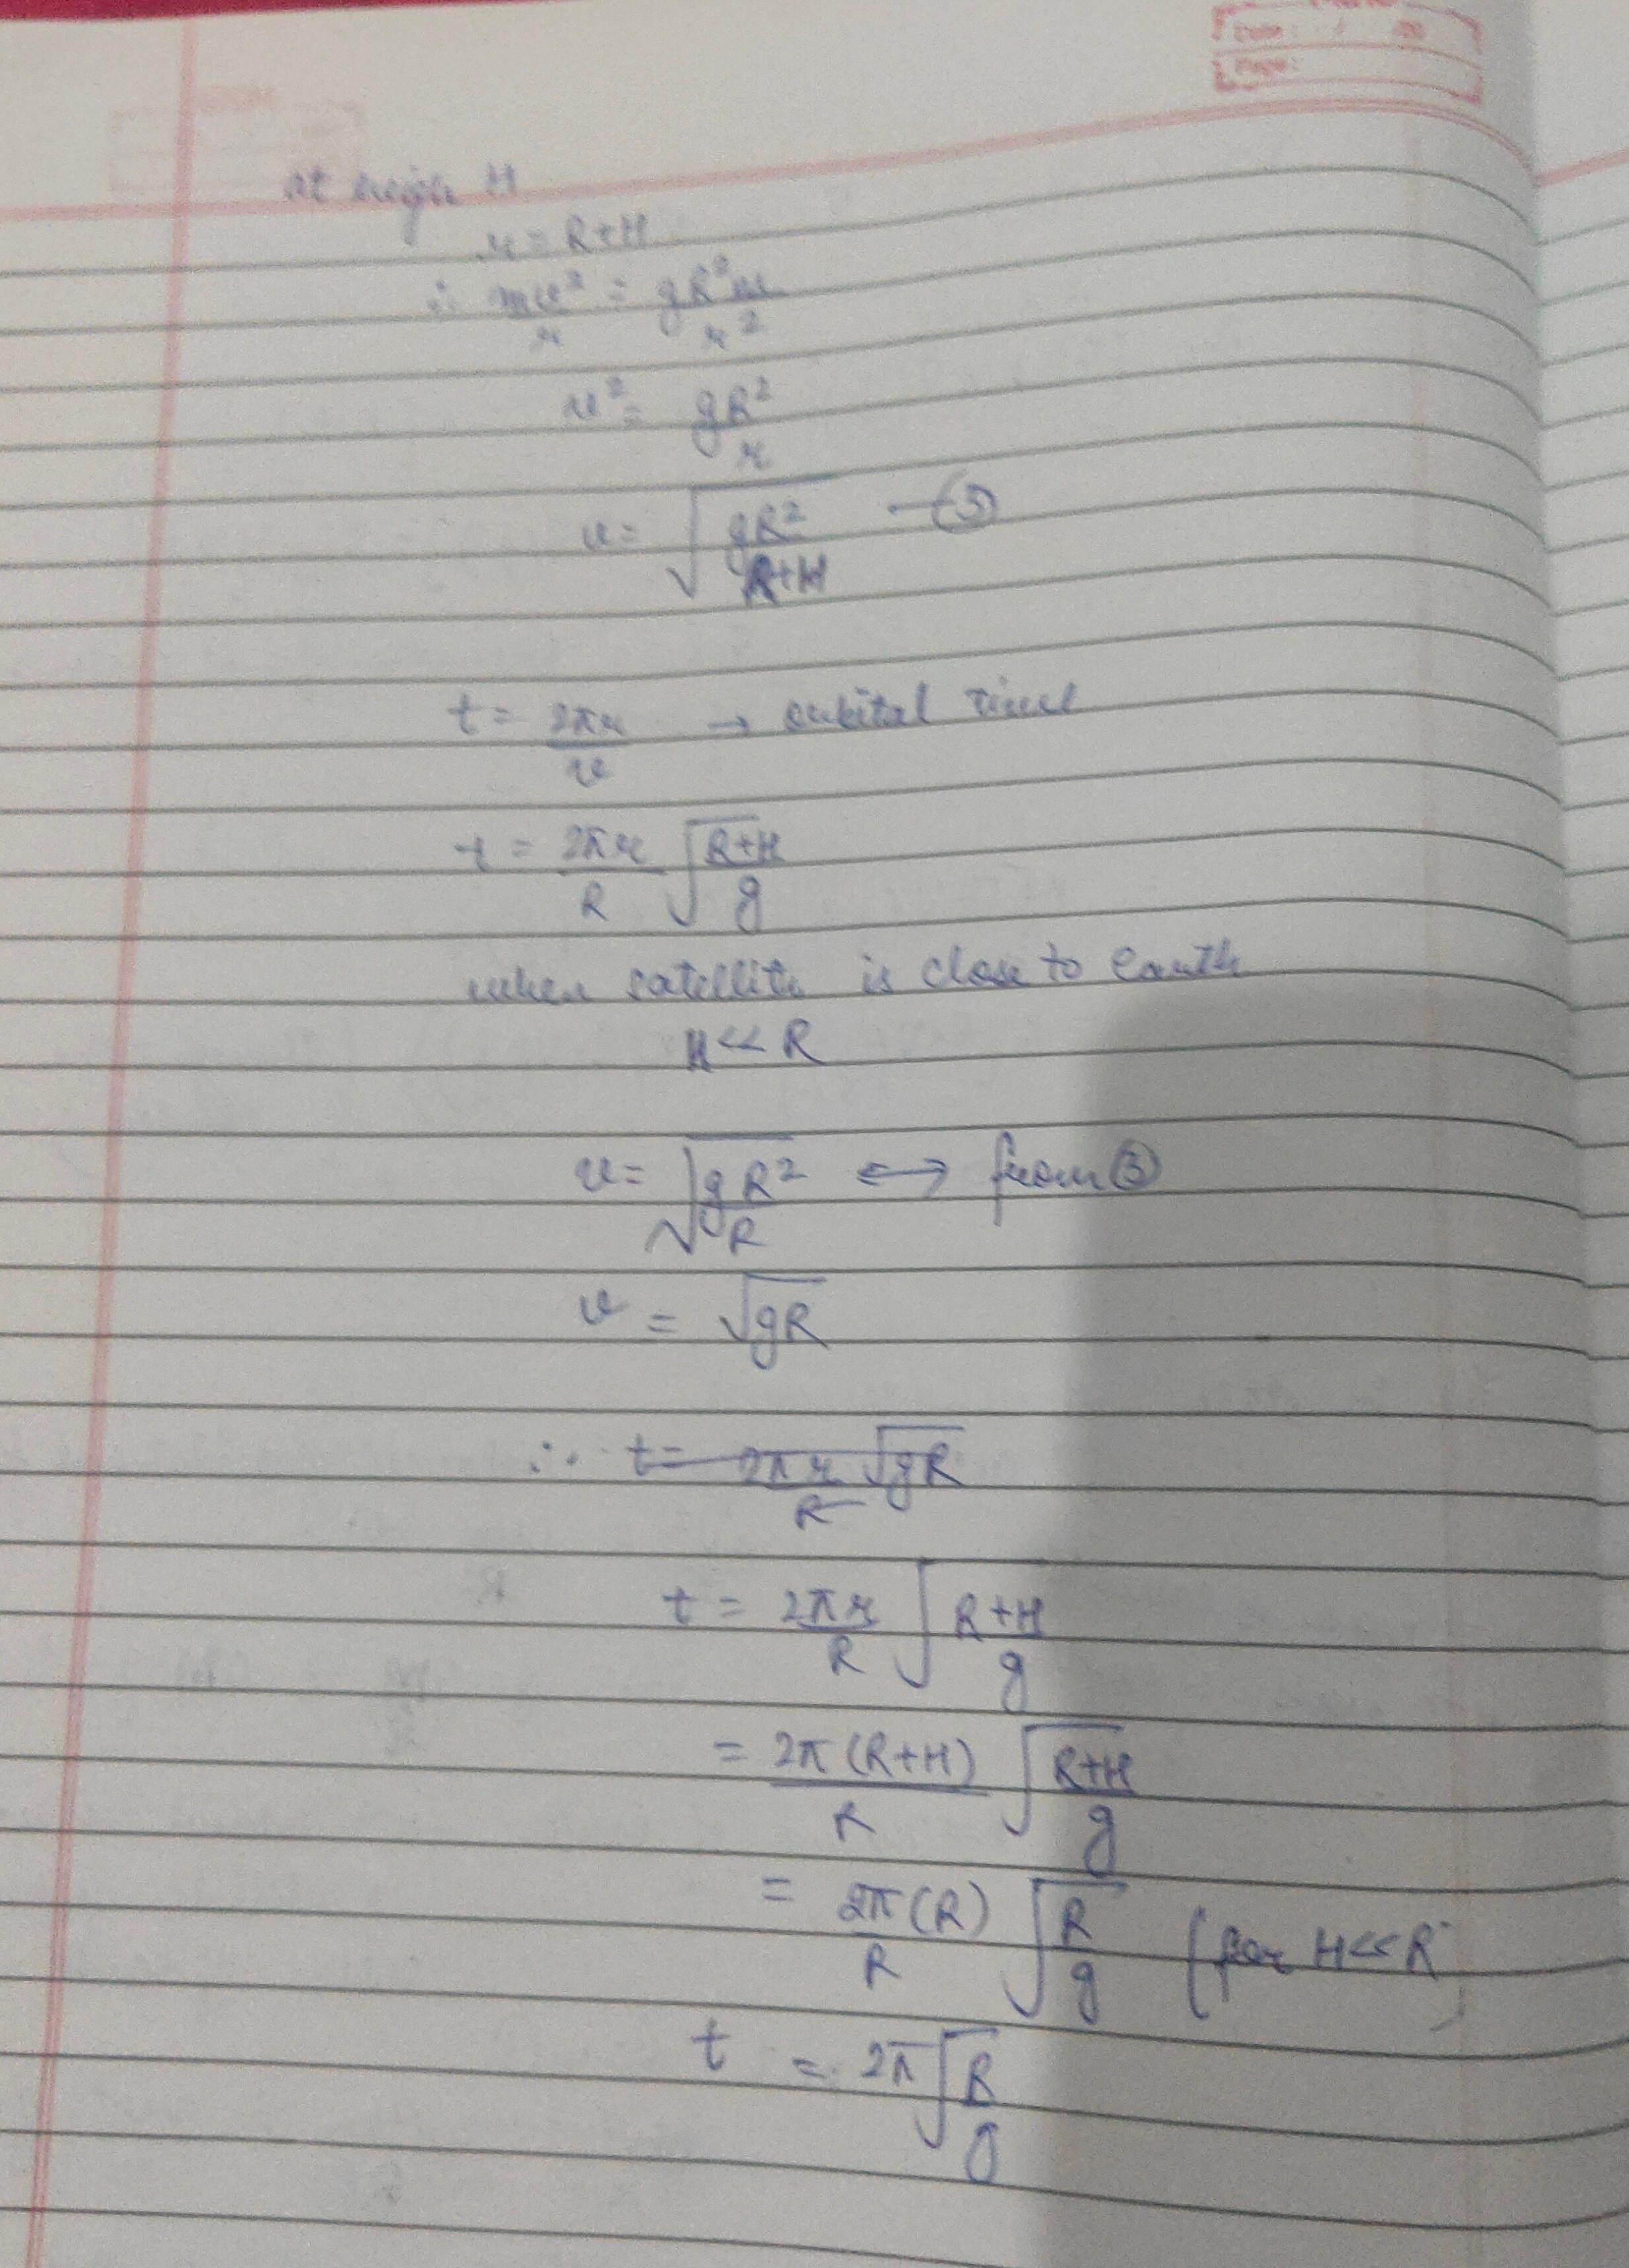 Date : / /20
Page :
at heigh H
r = R+H
∴ mv²/r = gR²m/r²
v² = gR²/r
v = √(gR²/R+H) —(3)
t = 2πr/v → orbital time
t = 2πr/R √(R+H/g)
when satellite is close to earth
H << R
v = √(gR²/R) ⟷ from (3)
v = √gR
∴ t = 2πr/R √gR
t = 2πr/R √(R+H/g)
= 2π(R+H)/R √(R+H/g)
= 2π(R)/R √(R/g) (for H<<R)
t = 2π √(R/g)